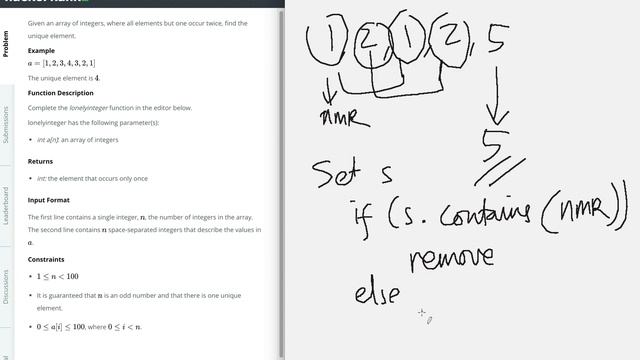 Problem
Submissions
Leaderboard
Discussions
Given an array of integers, where all elements but one occur twice, find the
unique element.
Example
a = [1, 2, 3, 4, 3, 2, 1]
The unique element is 4.
Function Description
Complete the lonelyinteger function in the editor below.
lonelyinteger has the following parameter(s):
int a[n]: an array of integers
Returns
int: the element that occurs only once
Input Format
The first line contains a single integer, n, the number of integers in the array.
The second line contains n space-separated integers that describe the values in
a.
Constraints
1 ≤ n < 100
It is guaranteed that n is an odd number and that there is one unique
element.
0 ≤ a[i] ≤ 100, where 0 ≤ i < n.
1, 2, 1, 2, 5
nmR
5
Set s
if (s. contains (nmR))
remove
else